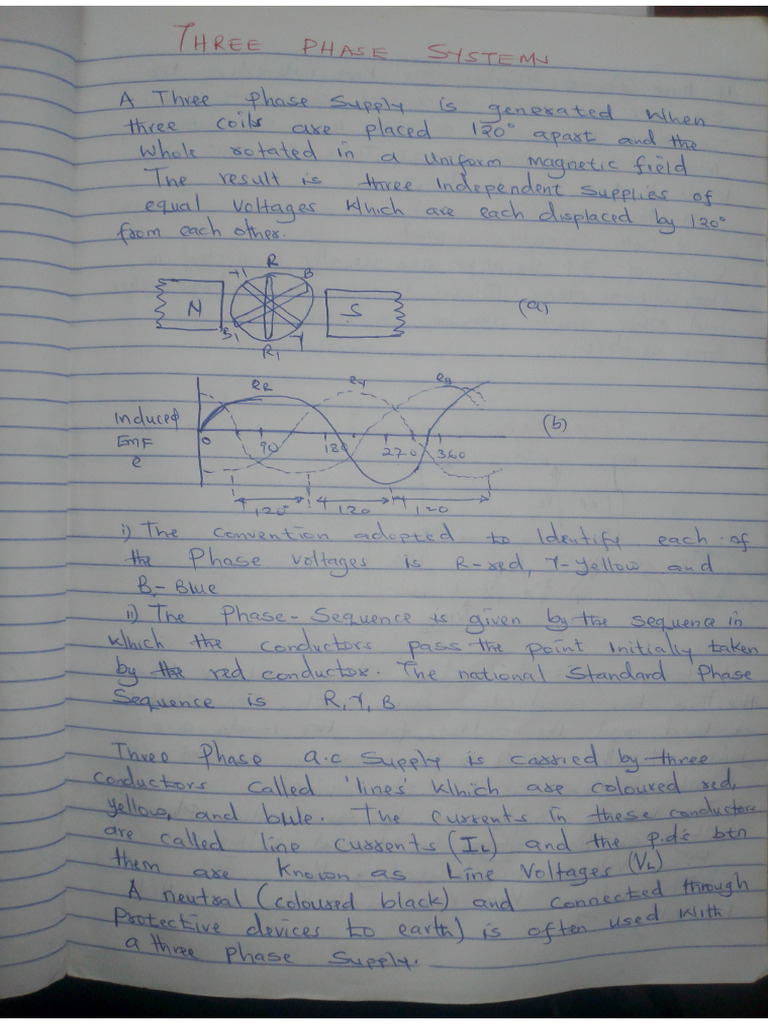 THREE PHASE SYSTEMS
A Three phase supply is generated when
three coils are placed 120° apart and the
whole rotated in a uniform magnetic field
The result is three independent supplies of
equal voltages which are each displaced by 120°
from each other.
Y1 R B
N S (a)
B1 R1 Y
ER EY EB
Induced (b)
Emf 0 90 180 270 360
e
120° 120 120
i) The convention adopted to identify each of
the phase voltages is R-red, Y-yellow and
B-Blue
ii) The Phase-Sequence is given by the sequence in
which the conductors pass the point initially taken
by the red conductor. The national standard Phase
Sequence is R, Y, B
Three Phase a.c supply is carried by three
conductors called 'lines' which are coloured red,
yellow, and blue. The currents in these conductors
are called line currents (IL) and the p.ds btn
them are known as Line Voltages (VL)
A neutral (coloured black) and connected through
protective devices to earth) is often used with
a three phase supply.